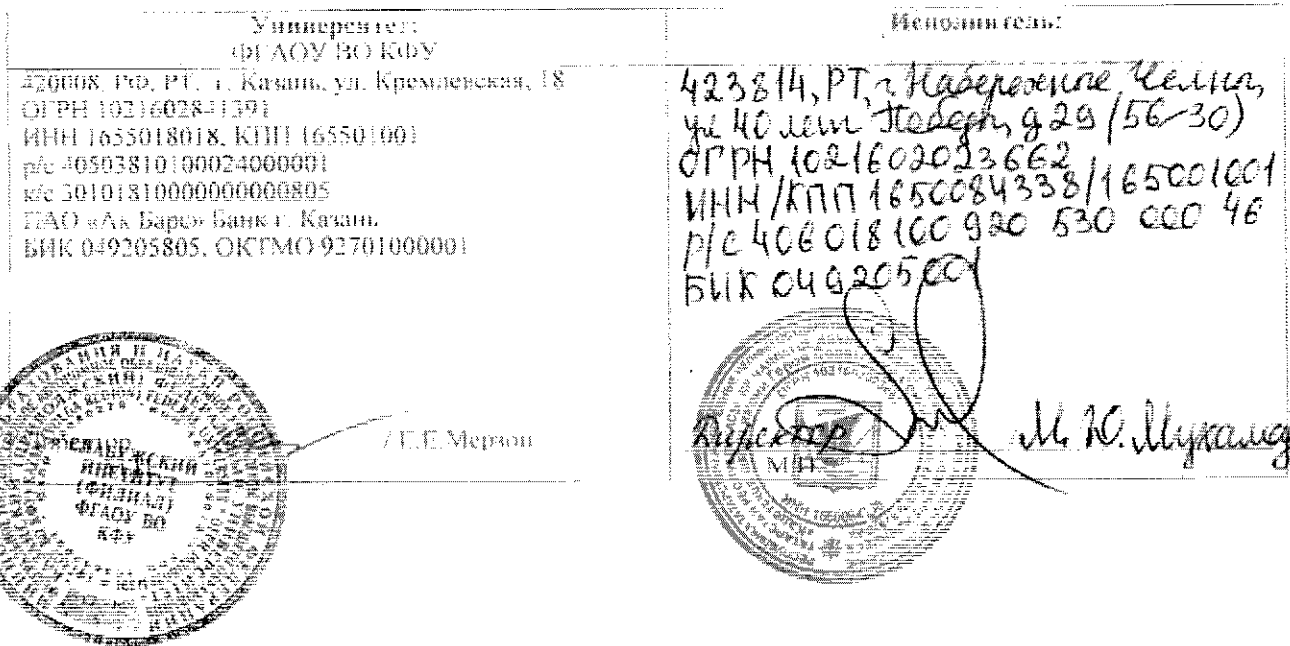 Университет:
ФГАОУ ВО КФУ
420008, РФ, РТ, г. Казань, ул. Кремлевская, 18
ОГРН 1021602841391
ИНН 1655018018, КПП 165501001
р/с 40503810100024000001
к/с 30101810000000000805
ПАО «Ак Барс» Банк г. Казань
БИК 049205805, ОКТМО 92701000001
/ Е.Е.Мерзон
ЕЛАБУЖСКИЙ
ИНСТИТУТ
(ФИЛИАЛ)
ФГАОУ ВО
КФУ
Исполнитель:
423814, РТ, г. Набережные Челны,
ул 40 лет Победы, д 29 (56-30)
ОГРН 1021602023662
ИНН/КПП 1650084338/165001001
р/с 406018100 920 530 000 46
БИК 049205001
Директор М.Ю.Мухамед
М.П.